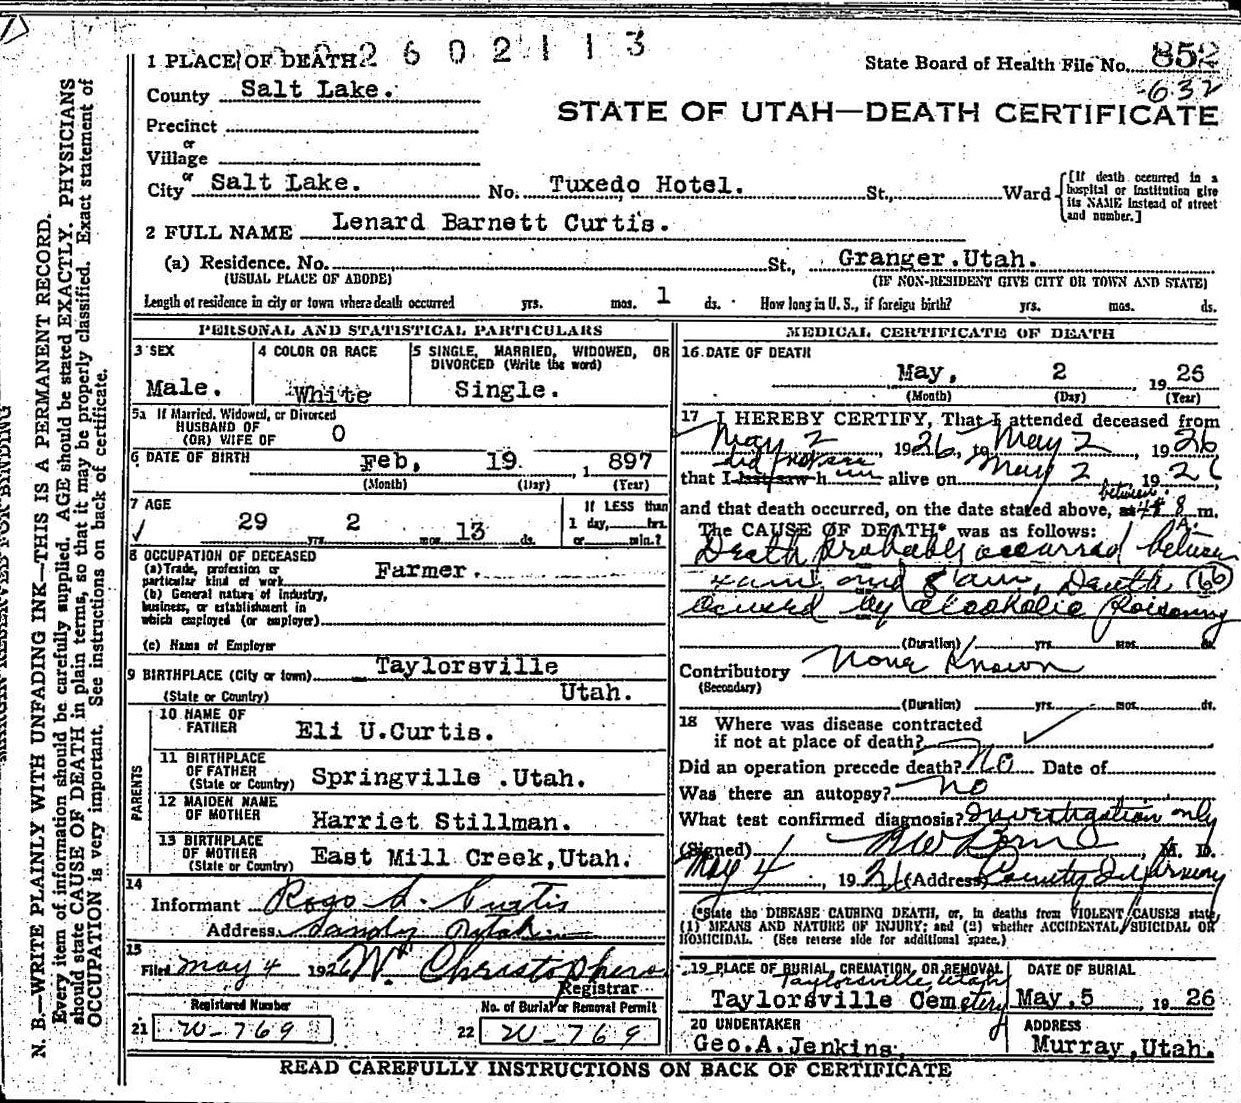 2602113
1 PLACE OF DEATH
State Board of Health File No. 852
632
County Salt Lake.
STATE OF UTAH—DEATH CERTIFICATE
Precinct
or
Village
or
City Salt Lake. No. Tuxedo Hotel. St., Ward
[If death occurred in a hospital or Institution give its NAME instead of street and number.]
2 FULL NAME Lenard Barnett Curtis.
(a) Residence. No. St., Granger.Utah.
(USUAL PLACE OF ABODE) (IF NON-RESIDENT GIVE CITY OR TOWN AND STATE)
Length of residence in city or town where death occurred yrs. mos. 1 ds. How long in U. S., if foreign birth? yrs. mos. ds.
PERSONAL AND STATISTICAL PARTICULARS
3 SEX
Male.
4 COLOR OR RACE
White
5 SINGLE, MARRIED, WIDOWED, OR
DIVORCED (Write the word)
Single.
5a If Married, Widowed, or Divorced
HUSBAND OF
(OR) WIFE OF 0
6 DATE OF BIRTH Feb, 19. , 1 897
(Month) (Day) (Year)
7 AGE
29 yrs. 2 mos. 13 ds.
If LESS than
1 day, hrs.
or min.?
8 OCCUPATION OF DECEASED
(a) Trade, profession or
particular kind of work Farmer.
(b) General nature of industry,
business, or establishment in
which employed (or employer)
(c) Name of Employer
9 BIRTHPLACE (City or town) Taylorsville
(State or Country) Utah.
PARENTS
10 NAME OF
FATHER Eli U.Curtis.
11 BIRTHPLACE
OF FATHER
(State or Country) Springville .Utah.
12 MAIDEN NAME
OF MOTHER Harriet Stillman.
13 BIRTHPLACE
OF MOTHER
(State or Country) East Mill Creek,Utah.
14
Informant Curtis
Address Sandy Utah
15
Filed May 4 1926 Wm Christophers
Registrar
Registered Number
21 W-769
No. of Burial or Removal Permit
22 W-769
MEDICAL CERTIFICATE OF DEATH
16 DATE OF DEATH
May, 2 , 19 26
(Month) (Day) (Year)
17 I HEREBY CERTIFY, That I attended deceased from
May 2 1926, to May 2 , 1926
did not see
that I last saw him alive on May 2 , 1926
between
and that death occurred, on the date stated above, at 4 & 8 A. m.
The CAUSE OF DEATH* was as follows:
Death probably occurred between
4 am and 8 am, Death 66
caused by alcoholic poisoning
(Duration) yrs. mos. ds.
Contributory None Known
(Secondary)
(Duration) yrs. mos. ds.
18 Where was disease contracted
if not at place of death?
Did an operation precede death? No Date of
Was there an autopsy? no
What test confirmed diagnosis? Investigation only
(Signed) , M. D.
May 4 , 1926 (Address) County Infirmary
(*State the DISEASE CAUSING DEATH, or, in deaths from VIOLENT CAUSES state
(1) MEANS AND NATURE OF INJURY; and (2) whether ACCIDENTAL, SUICIDAL OR
HOMICIDAL. (See reverse side for additional space.)
19 PLACE OF BURIAL, CREMATION, OR REMOVAL
Taylorsville, Utah
Taylorsville Cemetery
DATE OF BURIAL
May.5 19 26
20 UNDERTAKER
Geo.A.Jenkins.
ADDRESS
Murray,Utah.
READ CAREFULLY INSTRUCTIONS ON BACK OF CERTIFICATE
MARGIN RESERVED FOR BINDING
N. B.—WRITE PLAINLY WITH UNFADING INK—THIS IS A PERMANENT RECORD.
Every item of information should be carefully supplied. AGE should be stated EXACTLY. PHYSICIANS
should state CAUSE OF DEATH in plain terms, so that it may be properly classified. Exact statement of
OCCUPATION is very important. See instructions on back of certificate.